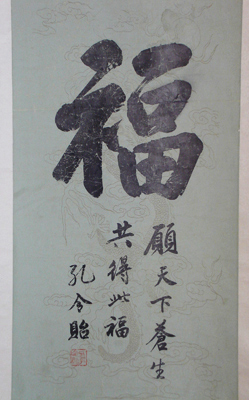 福
願天下蒼生
共得此福
孔令貽